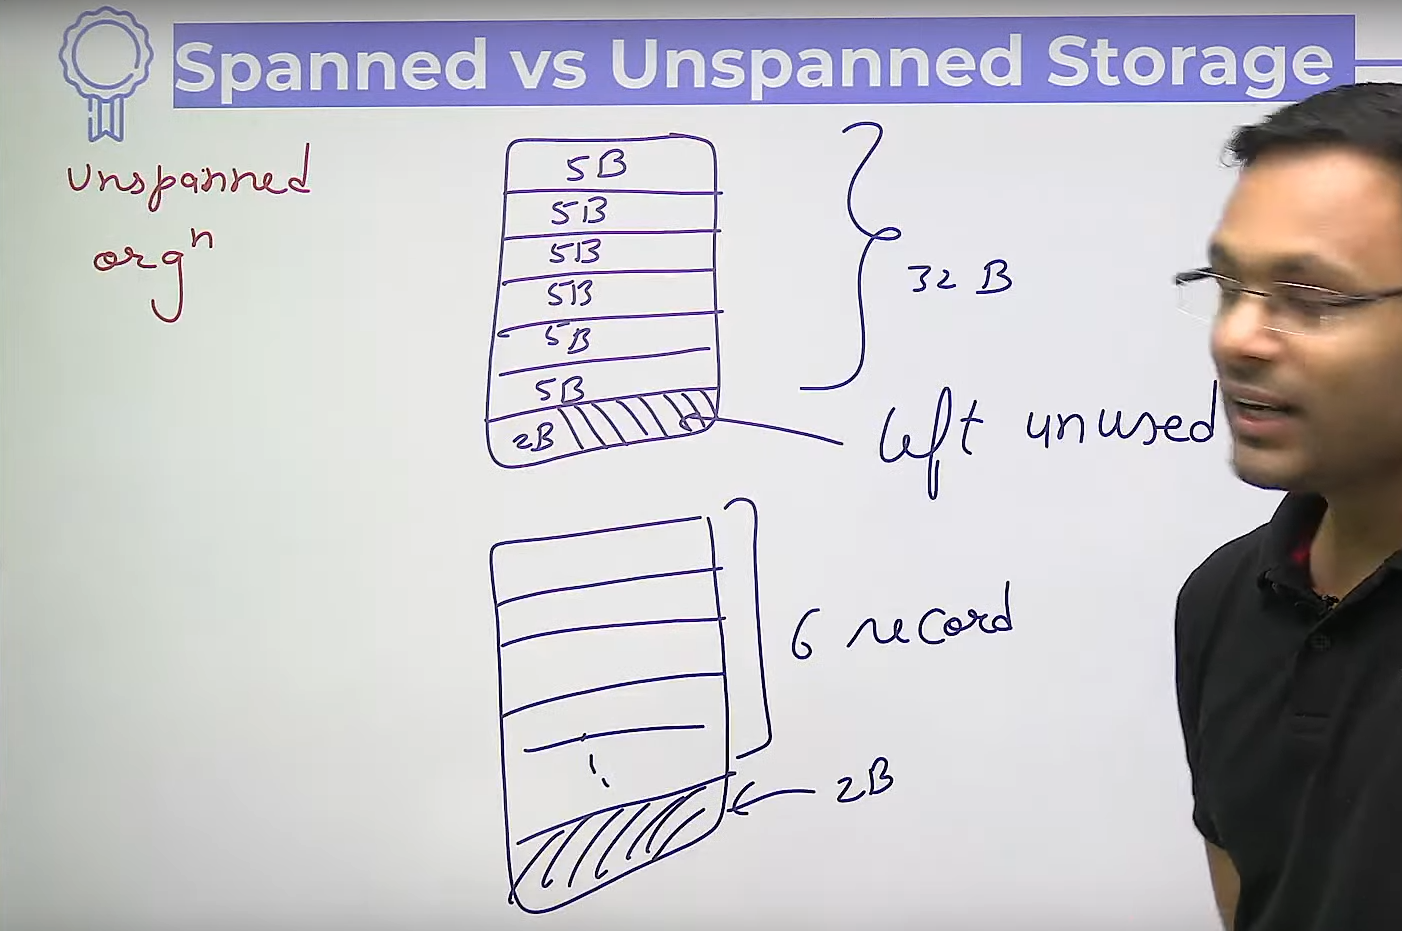 Spanned vs Unspanned Storage
unspanned
orgⁿ
5B
5B
5B
5B
5B
5B
2B
32 B
left unused
6 record
2B